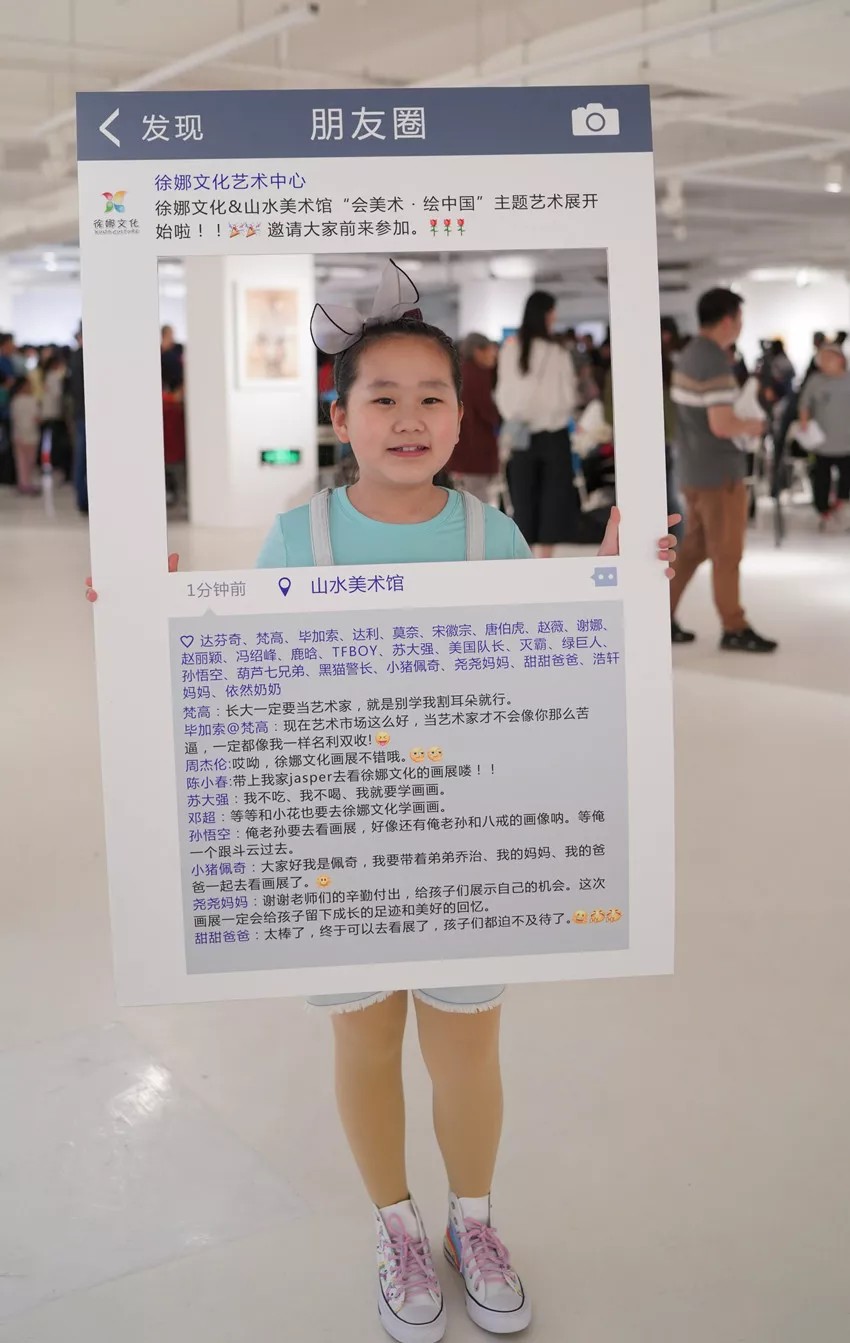 发现
朋友圈
徐娜文化艺术中心
徐娜文化&山水美术馆“会美术·绘中国”主题艺术展开
始啦！！🎉🎉 邀请大家前来参加。🌹🌹🌹
徐娜文化
1分钟前 山水美术馆
达芬奇、梵高、毕加索、达利、莫奈、宋徽宗、唐伯虎、赵薇、谢娜、
赵丽颖、冯绍峰、鹿晗、TFBOY、苏大强、美国队长、灭霸、绿巨人、
孙悟空、葫芦七兄弟、黑猫警长、小猪佩奇、尧尧妈妈、甜甜爸爸、浩轩
妈妈、依然奶奶
梵高：长大一定要当艺术家，就是别学我割耳朵就行。
毕加索@梵高：现在艺术市场这么好，当艺术家才不会像你那么苦
逼，一定都像我一样名利双收!😜
周杰伦:哎呦，徐娜文化画展不错哦。
陈小春:带上我家jasper去看徐娜文化的画展喽！！
苏大强：我不吃、我不喝、我就要学画画。
邓超：等等和小花也要去徐娜文化学画画。
孙悟空：俺老孙要去看画展，好像还有俺老孙和八戒的画像呐。等俺
一个跟斗云过去。
小猪佩奇：大家好我是佩奇，我要带着弟弟乔治、我的妈妈、我的爸
爸一起去看画展了。
尧尧妈妈：谢谢老师们的辛勤付出，给孩子们展示自己的机会。这次
画展一定会给孩子留下成长的足迹和美好的回忆。
甜甜爸爸：太棒了，终于可以去看展了，孩子们都迫不及待了。